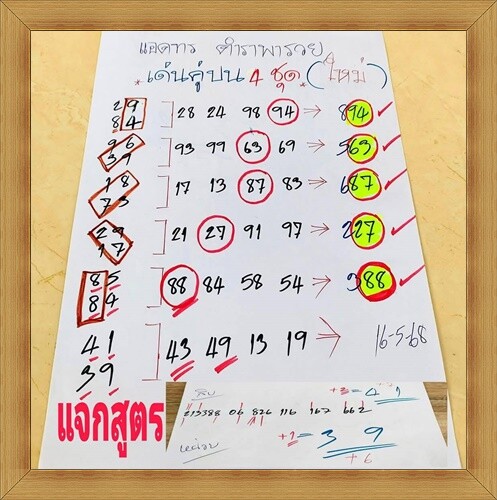 แอดการ ตำราพารวย
*เด่นคู่บน 4 ชุด* (ใหม่)
29
84 ] 28 24 98 94 → 894 ✓
96
39 ] 93 99 63 69 → 563 ✓
18
73 ] 17 13 87 83 → 687 ✓
29
17 ] 21 27 91 97 → 227 ✓
85
84 ] 88 84 58 54 → 388 ✓
41
39 ] 43 49 13 19 → 16-5-68
แจกสูตร
สิบ +3 = 4 1
213388 06 826 116 167 662
หน่วย +1 = 3 9
+6